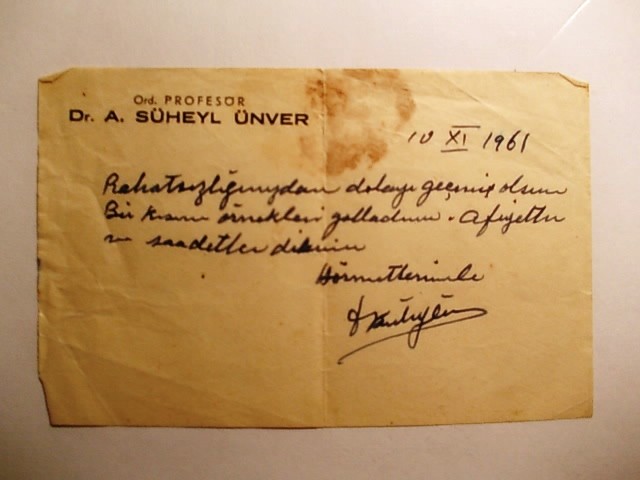 Ord. PROFESÖR
Dr. A. SÜHEYL ÜNVER
10 XI 1961
Rahatsızlığınızdan dolayı geçmiş olsun
Bir kısım örnekleri yolladım. Afiyetler
ve saadetler dilerim
Hörmetlerimle